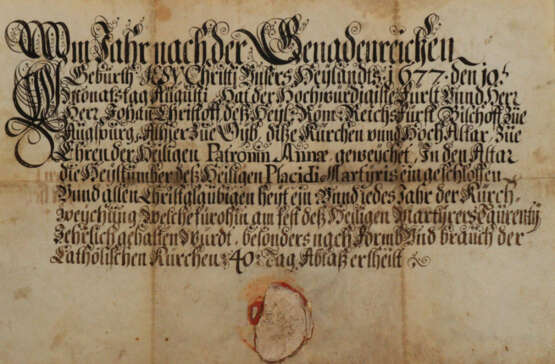 Im Jahr nach der Genadenreichen
Geburth JESV Christj Vnsers Heylandts 1677 den 19.
Monatstag Augusti Hat der Hochwürdigiste Fürst Vnnd Herr
Herr Johan Christoff deß Heyl: Röm: Reichs Fürst Bischoff zue
Augspurg Alhier zue Oÿb diße Kürchen vnnd Hoch Altar, zue
Ehren der Heiligen Patronin Annæ geweychet, In den Altar
die Heiltümber deß Heiligen Placidi Martyris ein geschlossen
Vund allen Christglaubigen heyt ein Vund jedes Jahr der Kürch
weychung welche fürohin am fest deß Heiligen Martyrers Laurentj
Jehrlich gehalten würdt, besonders nach form Vnd brauch der
Catholischen Kürchen 40 Tag Ablaß ertheilt